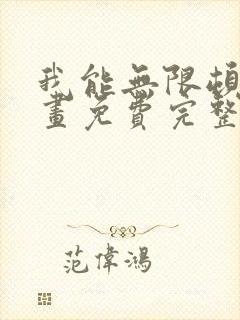 我能無限頓
畫免費完整
范偉鴻